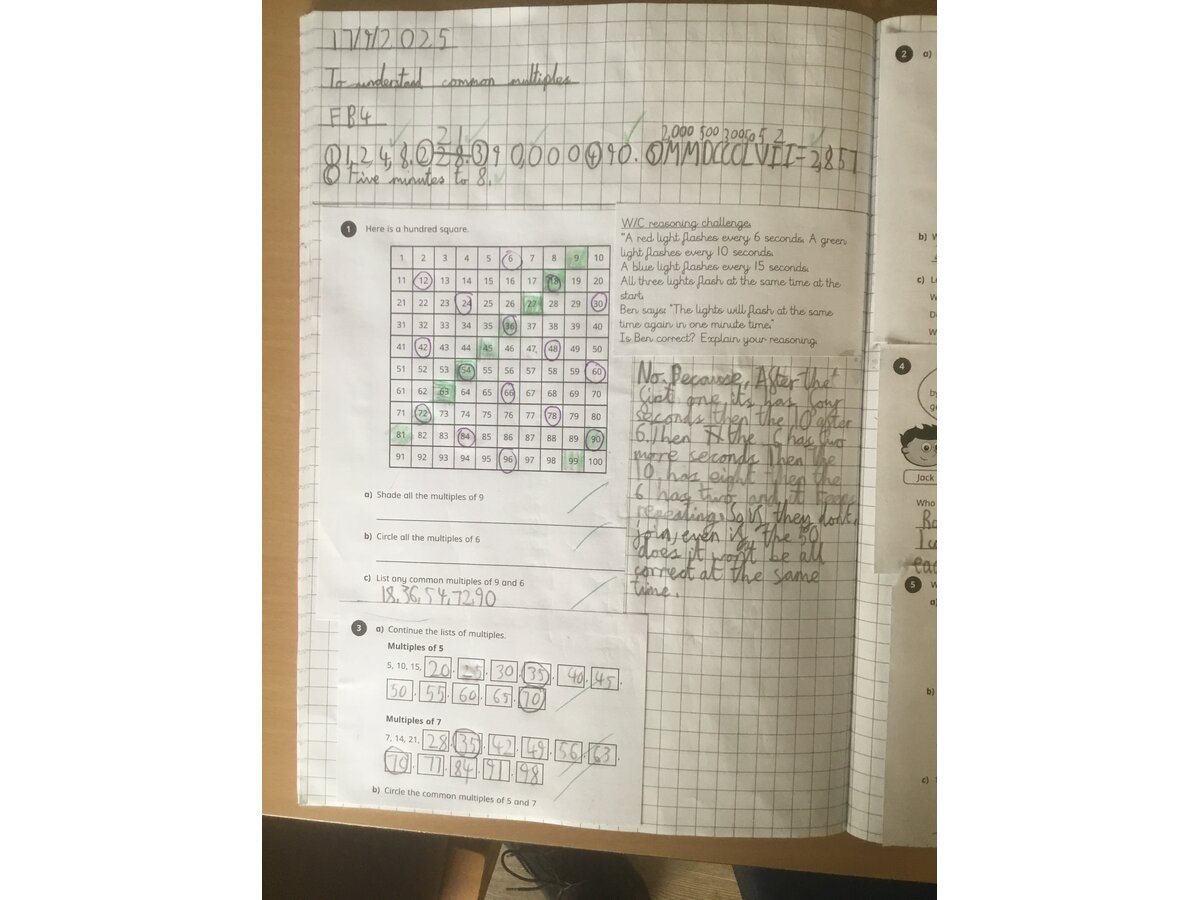 17/9/2025
To understand common multiples
FB4
2 1 2,000 500 300 50 5 2
① 1, 2, 4, 8. ② 28. ③ 90,000 ④ 90. ⑤ MMDCCCLVII = 2,857
⑥ Five minutes to 8.
1 Here is a hundred square.
1 2 3 4 5 6 7 8 9 10
11 12 13 14 15 16 17 18 19 20
21 22 23 24 25 26 27 28 29 30
31 32 33 34 35 36 37 38 39 40
41 42 43 44 45 46 47 48 49 50
51 52 53 54 55 56 57 58 59 60
61 62 63 64 65 66 67 68 69 70
71 72 73 74 75 76 77 78 79 80
81 82 83 84 85 86 87 88 89 90
91 92 93 94 95 96 97 98 99 100
a) Shade all the multiples of 9
b) Circle all the multiples of 6
c) List any common multiples of 9 and 6
18, 36, 54, 72, 90
W/C reasoning challenge.
"A red light flashes every 6 seconds. A green
light flashes every 10 seconds.
A blue light flashes every 15 seconds.
All three lights flash at the same time at the
start.
Ben says: "The lights will flash at the same
time again in one minute time."
Is Ben correct? Explain your reasoning.
No. Because, After the
first one, its has four
seconds then the 10 after
6. Then the 6 has two
more seconds Then the
10 has eight then the
6 has two and it keeps
repeating. So if they don't
join, even if the 50
does it won't be all
correct at the same
time.
3 a) Continue the lists of multiples.
Multiples of 5
5, 10, 15, 20, 25, 30, 35, 40, 45,
50, 55, 60, 65, 70
Multiples of 7
7, 14, 21, 28, 35, 42, 49, 56, 63,
70, 77, 84, 91, 98
b) Circle the common multiples of 5 and 7
2 a)
b) W
c)
W
D
W
4
by
Jack
Who
5 W
a)
b)
c)